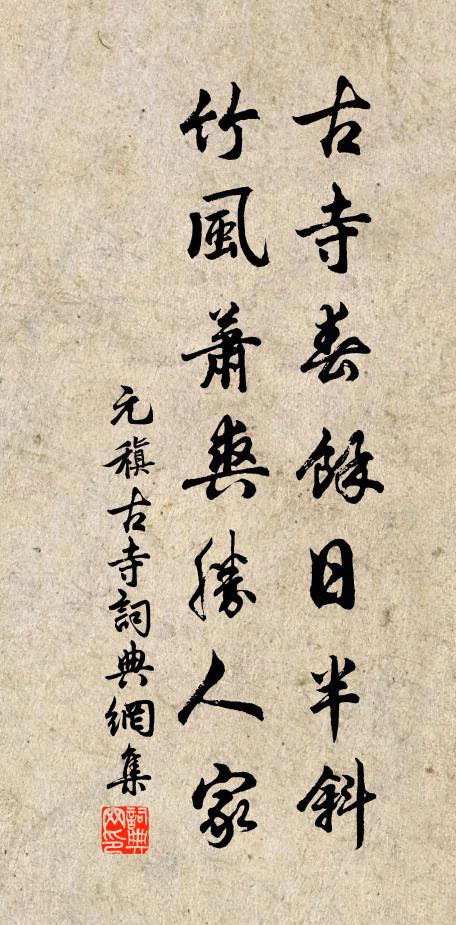 古寺春餘日半斜
竹風蕭爽勝人家
元稹古寺詞典網集
詞典网印